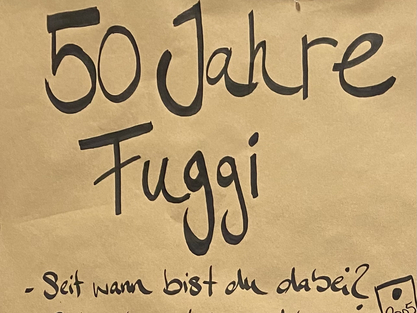 50 Jahre
Fuggi
- Seit wann bist du dabei?
2005